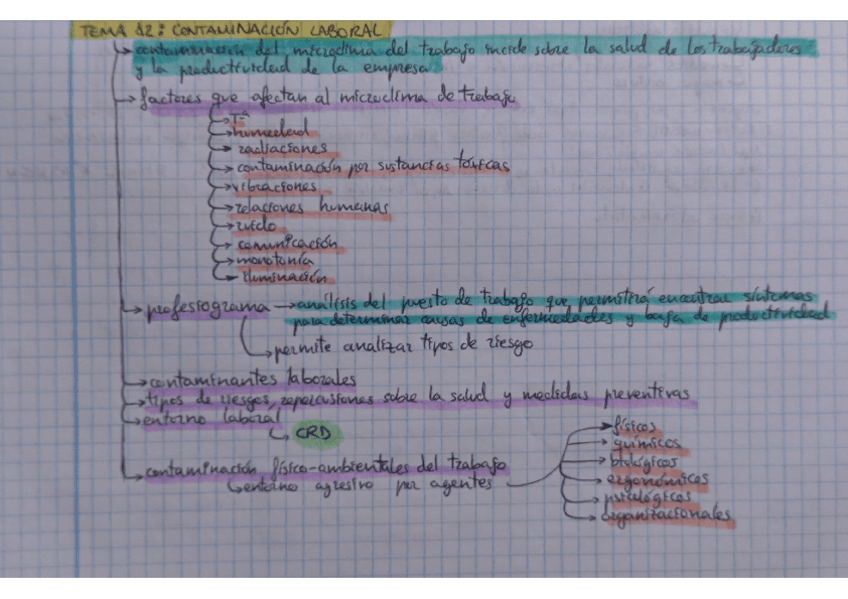 TEMA 12: CONTAMINACIÓN LABORAL
contaminación del microclima del trabajo incide sobre la salud de los trabajadores
y la productividad de la empresa
factores que afectan al microclima de trabajo
Tª
humedad
radiaciones
contaminación por sustancias tóxicas
vibraciones
relaciones humanas
ruido
comunicación
monotonía
iluminación
profesiograma → análisis del puesto de trabajo que permitirá encontrar síntomas
para determinar causas de enfermedades y baja de productividad
permite analizar tipos de riesgo
contaminantes laborales
tipos de riesgos, repercusiones sobre la salud y medidas preventivas
entorno laboral
CRD
contaminación físico-ambientales del trabajo
entorno agresivo por agentes
físicos
químicos
biológicos
ergonómicos
psicológicos
organizacionales